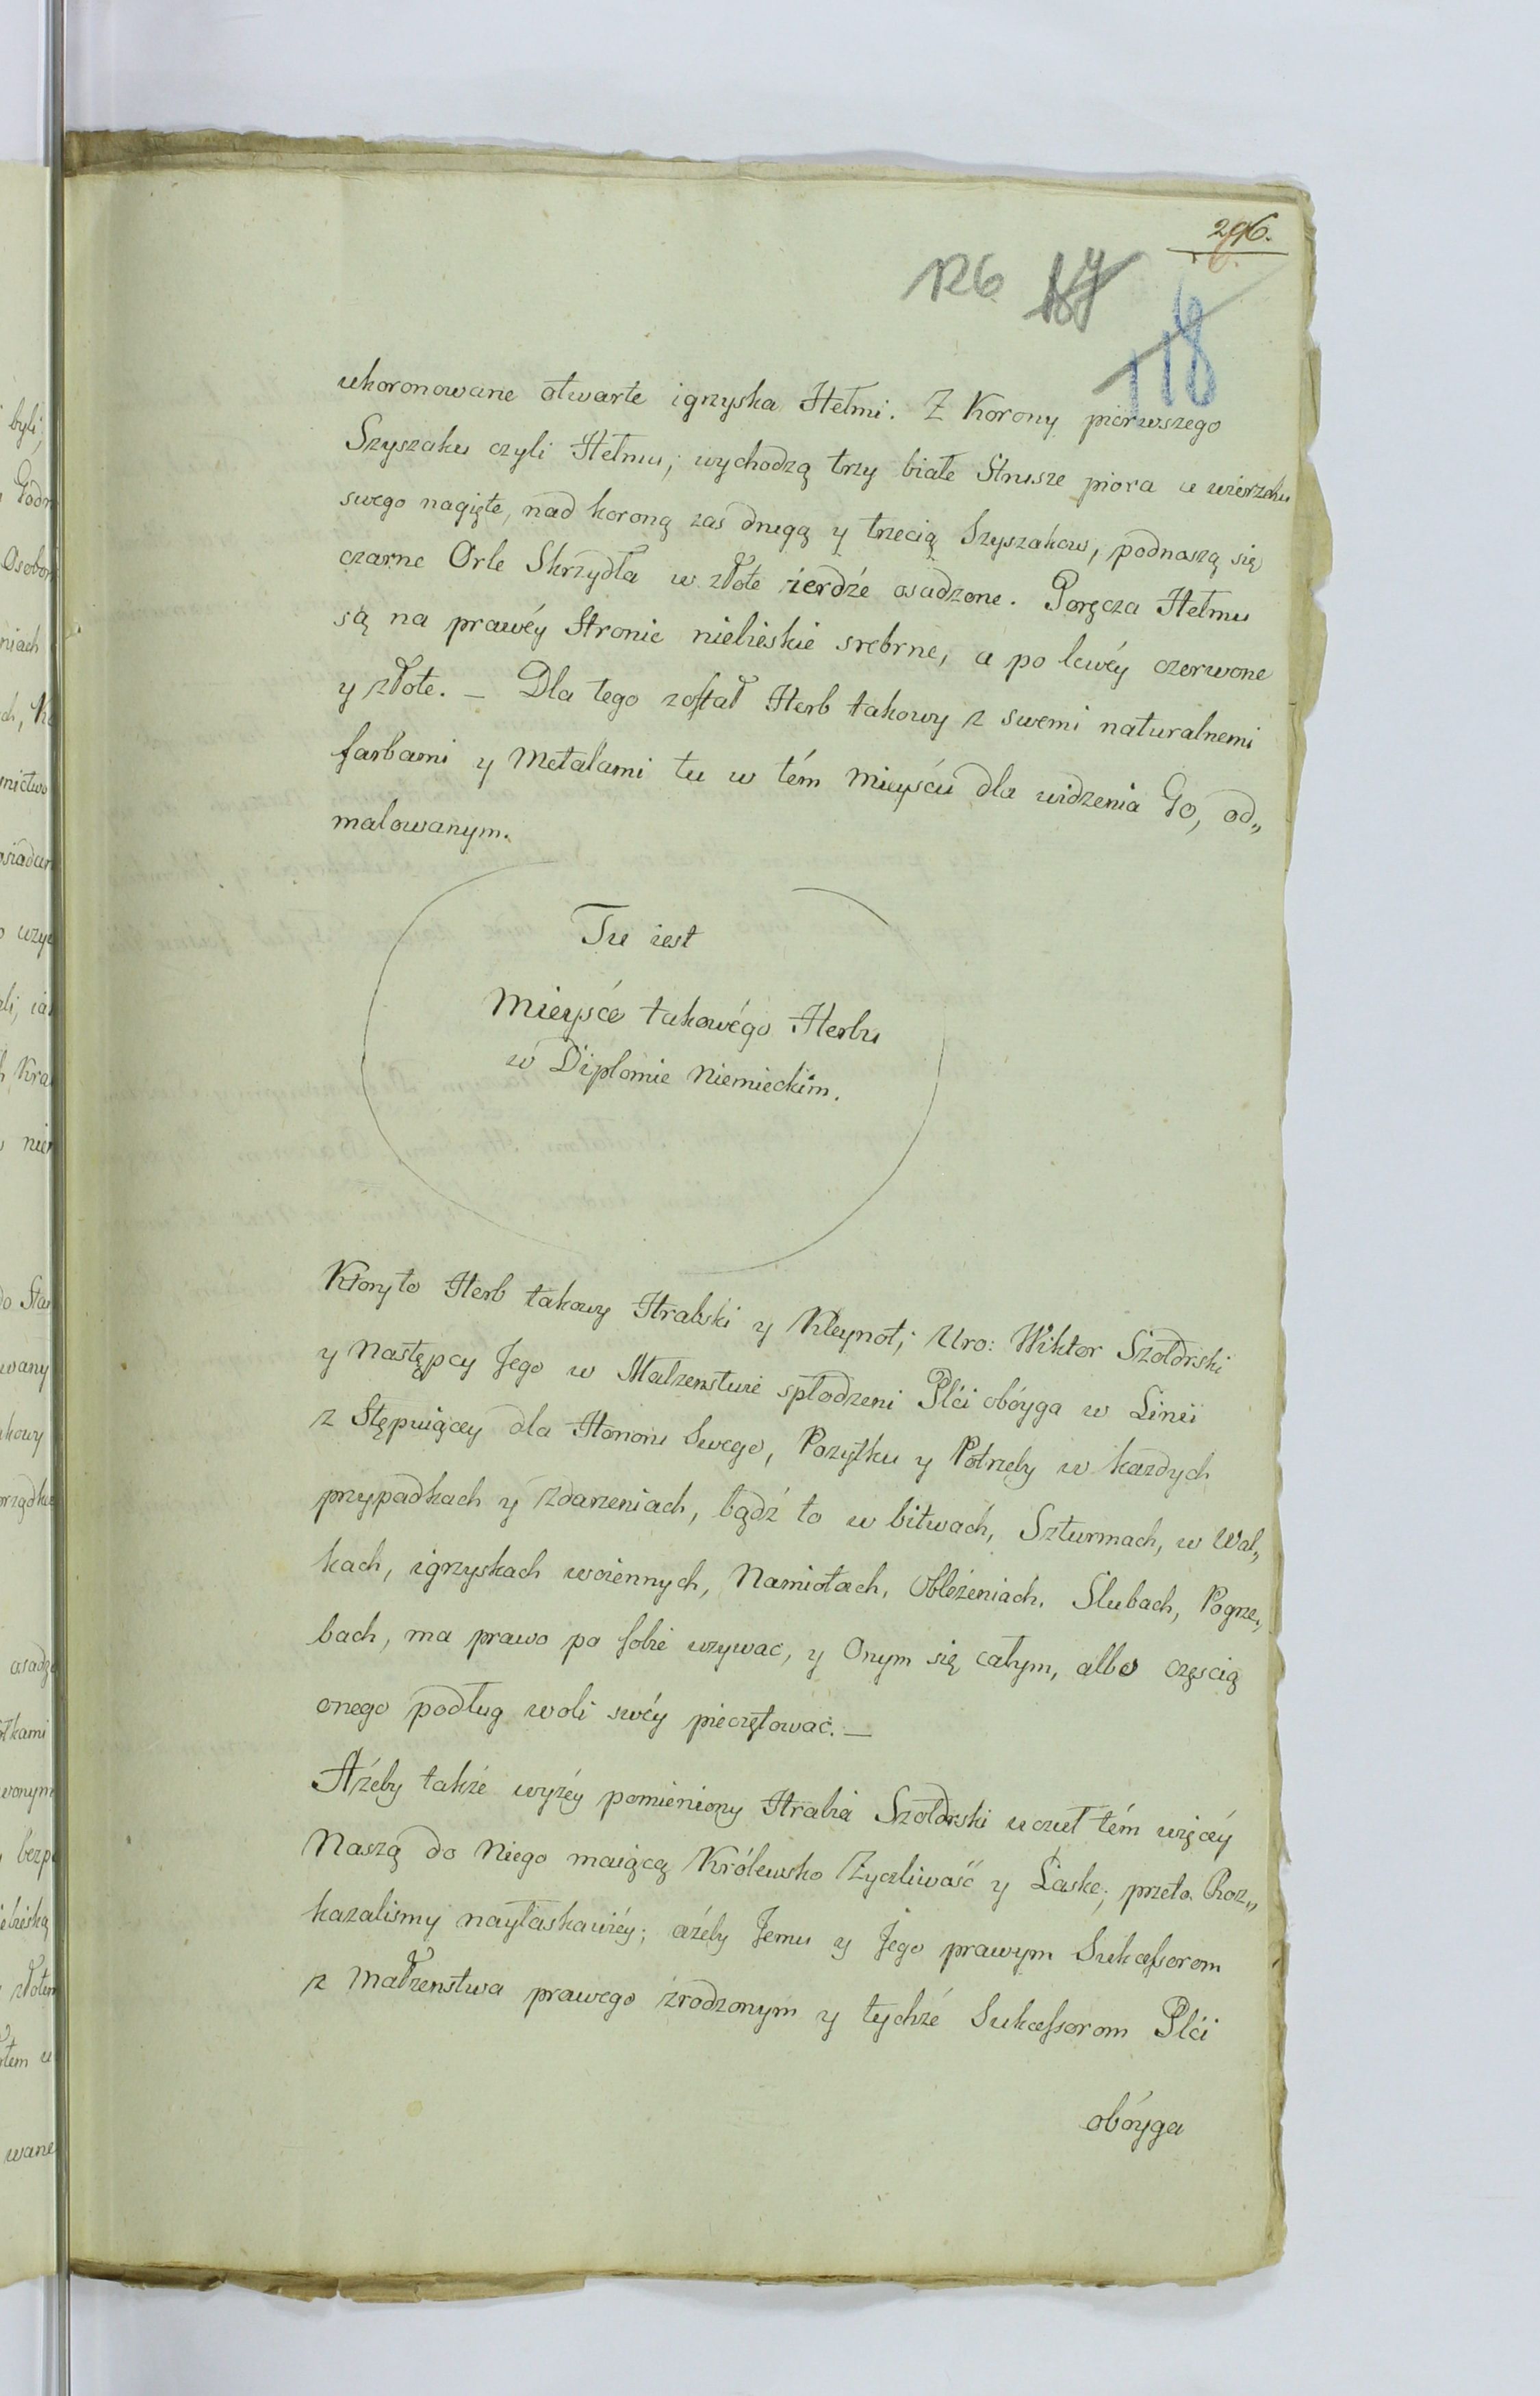 296.
126 117
118
ukoronowane otwarte igrzyska Hełmi. Z Korony pierwszego
Szyszaku czyli Hełmu, wychodzą trzy białe Strusze piora u wierzchu
swego nagięte, nad koroną zas drugą y trzecią Szyszakow, podnoszą się
czarne Orle Skrzydła w złote zierdźe osadzone. Poręcza Hełmu
są na prawéy Stronie niebieskie srebrne, a po lewéy czerwone
y złote. — Dla tego został Herb takowy z swemi naturalnemi
farbami y Metalami tu w tém Mieyścu dla widzenia Go, od„
malowanym.
Tu iest
Mieyśce takowégo Herbu
w Diplomie Niemieckim.
Ktory to Herb takowy Hrabski y Kleynot; Uro: Wiktor Szołdrski
y Następcy Jego w Małzenstwie spłodzeni Płći obóyga w Linii
z Stępuiącey dla Honoru Swego, Pozytku y Potrzeby w kazdych
przypadkach y zdarzeniach, bądź to w bitwach, Szturmach, w Wal„
kach, igrzyskach woiennych, Namiotach, Obleżeniach, Slubach, Pogrze„
bach, ma prawo po sobie uzywac, y Onym się całym, albo częscią
onego podług woli swéy pieczętować. —
Ażeby także wyzéy pomieniony Hrabia Szołdrski uczuł tém więcéy
Naszą do Niego maiącą Królewsko Zyczliwość y Łaskę; przeto Roz„
kazalismy nayłaskawiéy; ażeby Jemu y Jego prawym Sukcessorom
z Małzenstwa prawego zrodzonym y tychże Sukcessorom Płći
obóyga